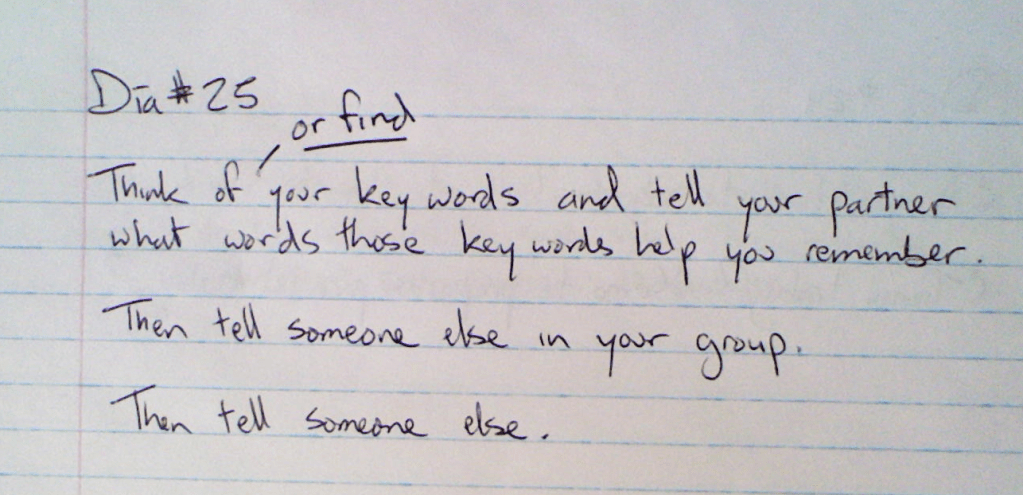 Dia #25
or find
Think of your key words and tell your partner
what words those key words help you remember.
Then tell someone else in your group.
Then tell someone else.